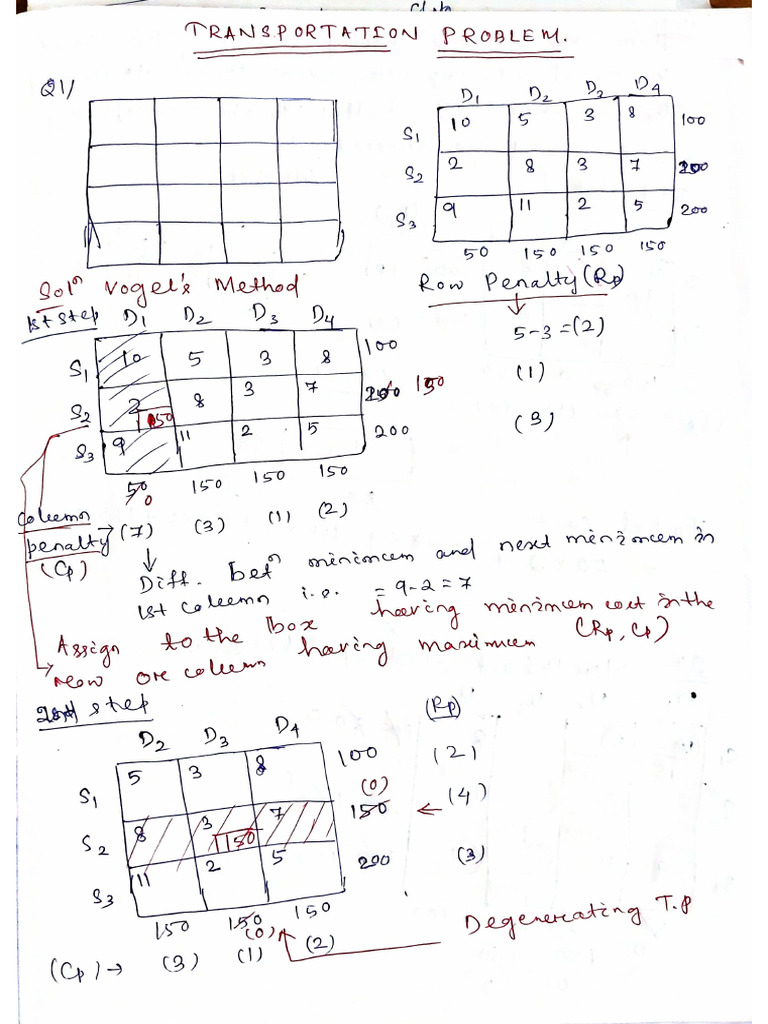 TRANSPORTATION PROBLEM.
Q1/
D1 D2 D3 D4
S1 10 5 3 8 100
S2 2 8 3 7 200
S3 9 11 2 5 200
50 150 150 150
Soln Vogel's Method
Row Penalty (Rp)
1st step D1 D2 D3 D4
5-3=(2)
S1 10 5 3 8 100
(1)
S2 2 50 8 3 7 200 150
(3)
S3 9 11 2 5 200
50 0 150 150 150
Column penalty (Cp) → (7) (3) (1) (2)
Diff. betn minimum and next minimum in
1st column i.e. = 9-2=7
Assign to the box having minimum cost in the
row or column having maximum (Rp, Cp)
2nd step
(Rp)
D2 D3 D4
S1 5 3 8 100 (2)
S2 8 3 150 7 150 (0) ← (4)
S3 11 2 5 200 (3)
150 150 (0) 150
Degenerating T.P
(Cp) → (3) (1) (2)